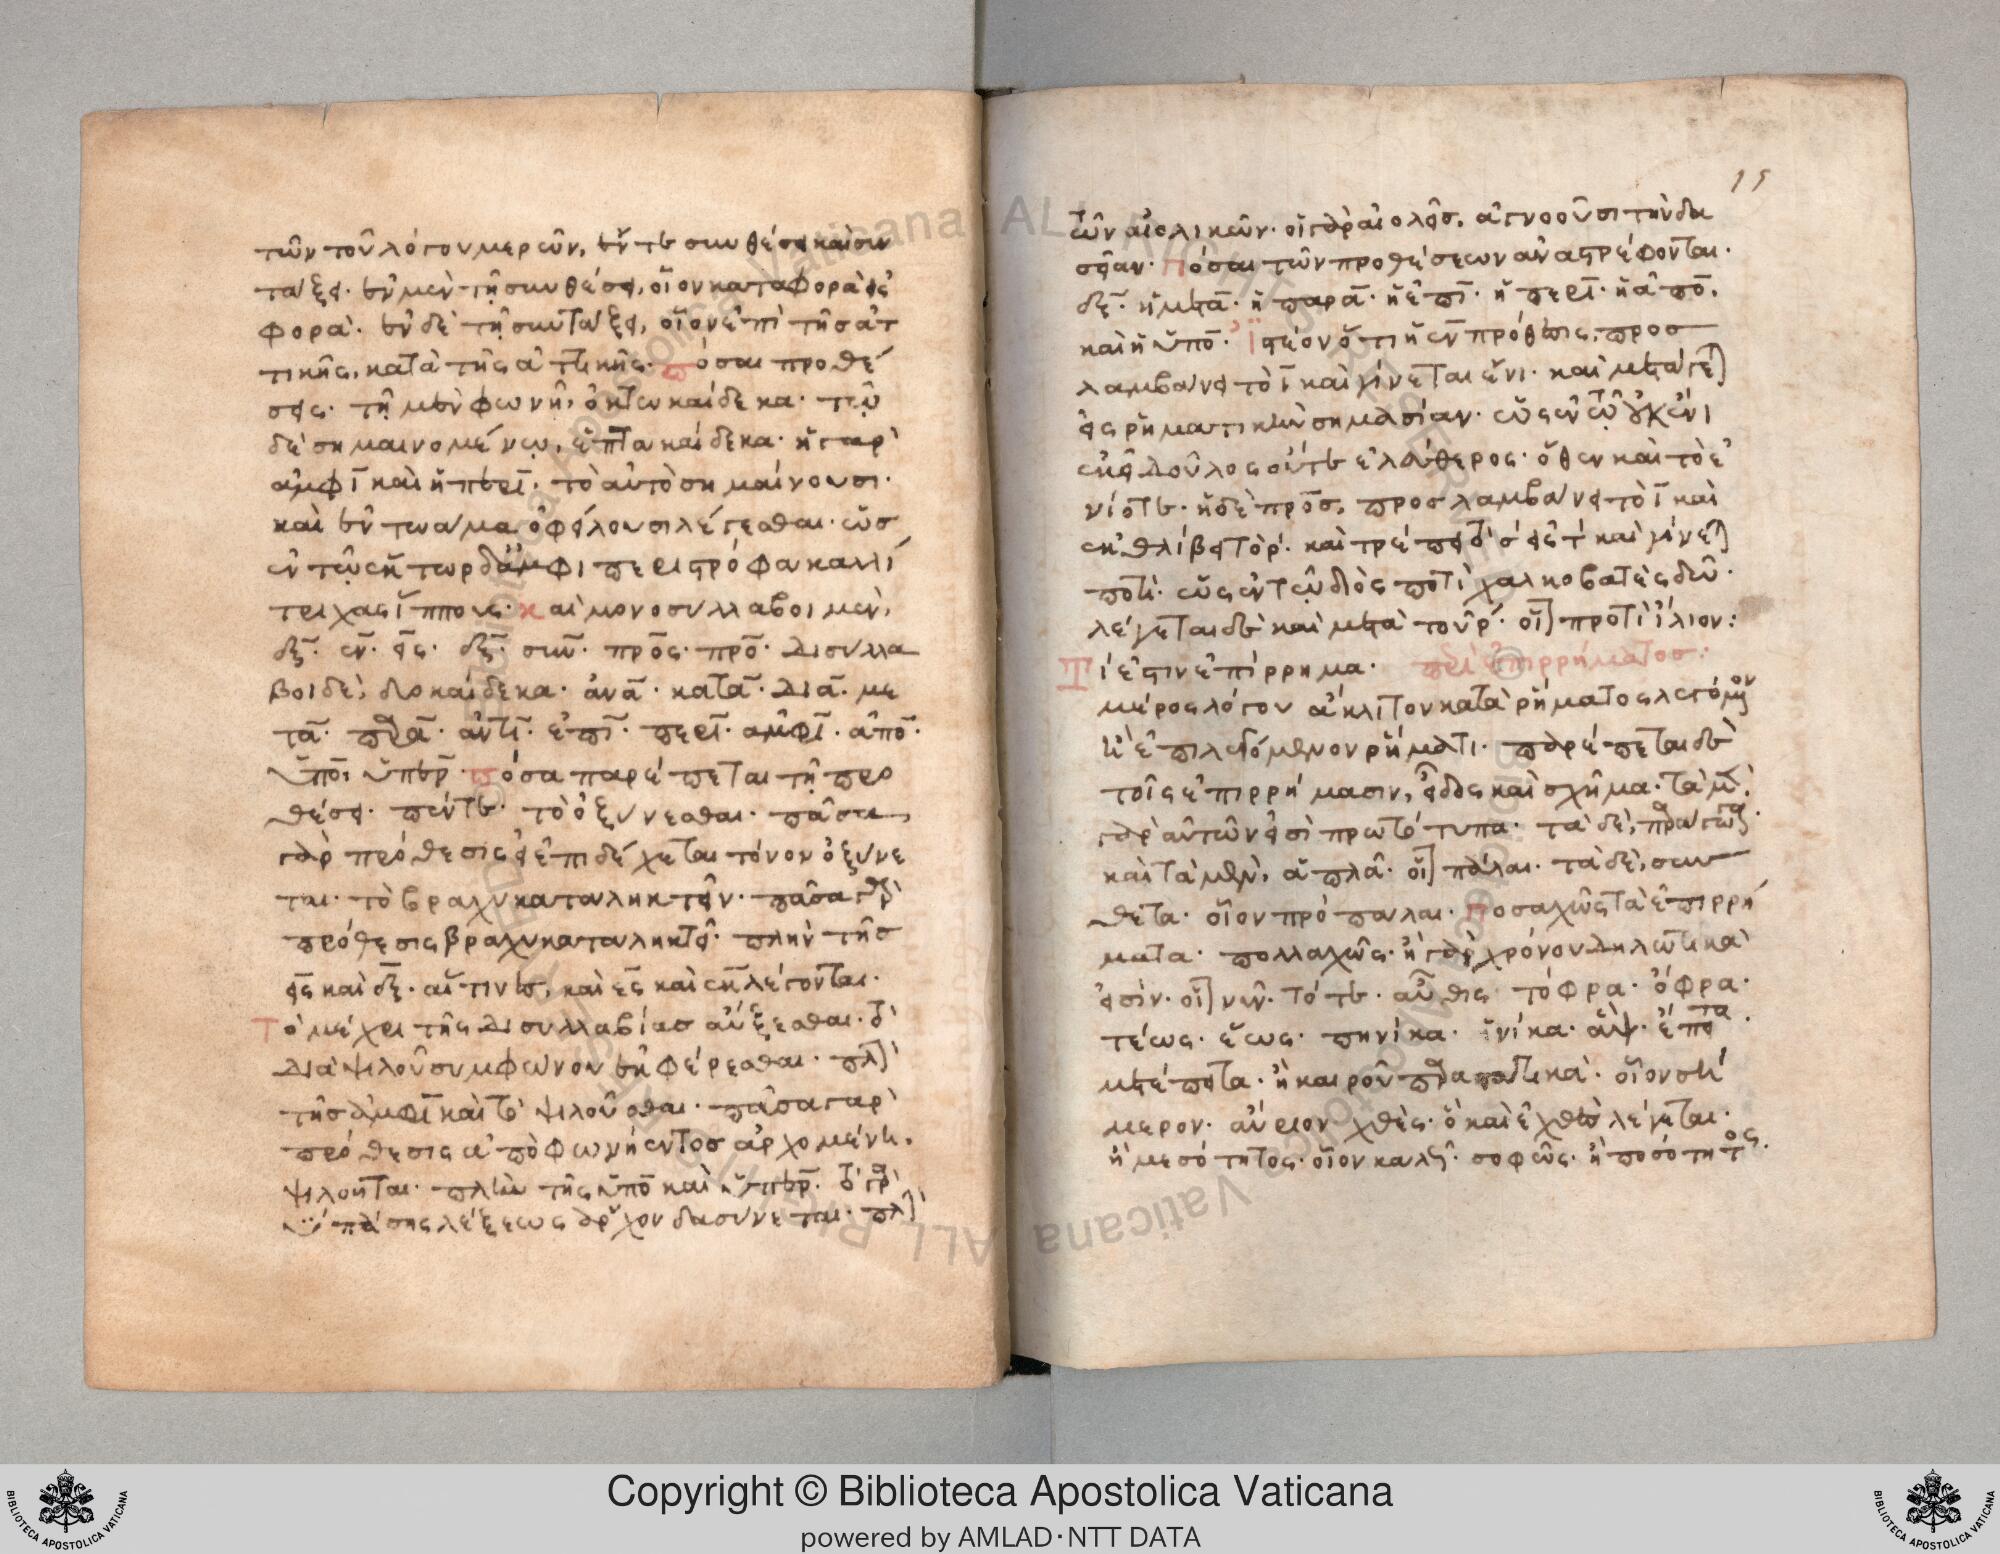 τῶν τοῦ λόγου μερῶν, ἔν τε συνθέσει καὶ συν
τάξει· ἐν μὲν τῇ συνθέσει, οἷον καταφορὰ εἰσ
φορά· ἐν δὲ τῇ συντάξει, οἷον ἐπὶ τῆς ἀτ
τικῆς, κατὰ τῆς ἀττικῆς· πόσαι προθέ
σεις· τῇ μὲν φωνῇ, ὀκτωκαίδεκα· τῷ
δὲ σημαινομένῳ, ἑπτακαίδεκα· ἡ γὰρ
ἀμφὶ καὶ ἡ περὶ· τὸ αὐτὸ σημαίνουσι·
καὶ ἐν τῷ ἅμα ὀφείλουσι λέγεσθαι· ὡς
ἐν τῷ ἕκτορ δ' ἀμφιπεριστρόφα καλλί
τριχας ἵππους· καὶ μονοσύλλαβοι μὲν,
ἐξ· ἐν· εἰς· ἐξ· σὺν· πρὸς· πρὸ· δισύλλα
βοι δὲ, δυοκαίδεκα· ἀνὰ· κατὰ· διὰ· με
τὰ· παρὰ· ἀντὶ· ἐπὶ· περὶ· ἀμφὶ· ἀπὸ·
ὑπὸ, ὑπὲρ· πόσα παρέπεται τῇ προ
θέσει· πέντε· τὸ ὀξύνεσθαι· πᾶσα
γὰρ πρόθεσις εἰ ἐπιδέχεται τόνον ὀξύνε
ται· τὸ βραχυκαταληκτεῖν· πᾶσα γὰρ
πρόθεσις βραχυκαταληκτεῖ· πλὴν τῆς
εἰς καὶ ἐξ· αἵτινες, καὶ ἐς καὶ ἐκ λέγονται·
Τὸ μέχρι τῆς δισυλλαβίας αὔξεσθαι· τὸ
διὰ ψιλοῦ συμφώνου ἐκφέρεσθαι· πλὴν
τῆς ἀμφὶ καὶ τὸ ψιλοῦσθαι· πᾶσα γὰρ
πρόθεσις ἀπὸ φωνήεντος ἀρχομένη,
ψιλοῦται· πλὴν τῆς ὑπὸ καὶ ὑπὲρ· τὸ γὰρ
ὑ πάσης λέξεως ἄρχον δασύνεται· πλὴν
15
τῶν αἰολικῶν· οἱ γὰρ αἰολεῖς, ἀγνοοῦσι τὴν δα
σεῖαν· Πόσαι τῶν προθέσεων ἀναστρέφονται·
ἐξ· ἡ μετὰ· ἡ παρὰ· ἡ ἐπὶ· ἡ περὶ· ἡ ἀπὸ,
καὶ ἡ ὑπὸ· Ἰστέον ὅτι ἡ ἐν πρόθεσις, προσ
λαμβάνει τὸ ῑ καὶ γίνεται ἔνι· καὶ μετάγεται
εἰς ῥηματικὴν σημασίαν· ὡς ἐν τῷ οὐκ ἔνι
ἐκεῖ δοῦλος οὔτε ἐλεύθερος· ὅθεν καὶ τὸ ἐ
νίοτε· ἡ δὲ πρὸς, προσλαμβάνει τὸ ῑ καὶ
ἐκθλίβει τὸ ρ· καὶ τρέπει τὸ σ εἰς τ καὶ γίνεται
ποτὶ· ὡς ἐν τῷ διὸς ποτὶ χαλκοβατὲς δῶ·
λέγεται δὲ καὶ μετὰ τοῦ ρ· οἷον προτὶ ἴλιον:
Τί ἐστιν ἐπίρρημα· περὶ ἐπιρρήματος:
μέρος λόγου ἄκλιτον κατὰ ῥήματος λεγόμενον
ἢ ἐπιλεγόμενον ῥήματι· παρέπεται δὲ
τοῖς ἐπιρρήμασιν, εἶδος καὶ σχῆμα· τὰ μὲν
γὰρ αὐτῶν εἰσὶ πρωτότυπα· τὰ δὲ, παράγωγα·
καὶ τὰ μὲν, ἁπλᾶ· οἷον πάλαι· τὰ δὲ, σύν
θετα· οἷον πρόπαλαι· Ποσαχῶς τὰ ἐπιρρή
ματα· πολλαχῶς· ἢ γὰρ χρόνου δηλωτικὰ
εἰσίν· οἷον νῦν· τότε· αὖθις τόφρα· ὄφρα·
τέως· ἕως· πηνίκα· ἡνίκα· ἂψ· ἔπειτα·
μετέπειτα· ἢ καιροῦ παραστατικά· οἷον σή
μερον· αὔριον χθές· ὃ καὶ ἐχθὲς λέγεται·
ἢ μεσότητος· οἷον καλῶς· σοφῶς· ἢ ποσότητος·
Copyright © Biblioteca Apostolica Vaticana
powered by AMLAD·NTT DATA